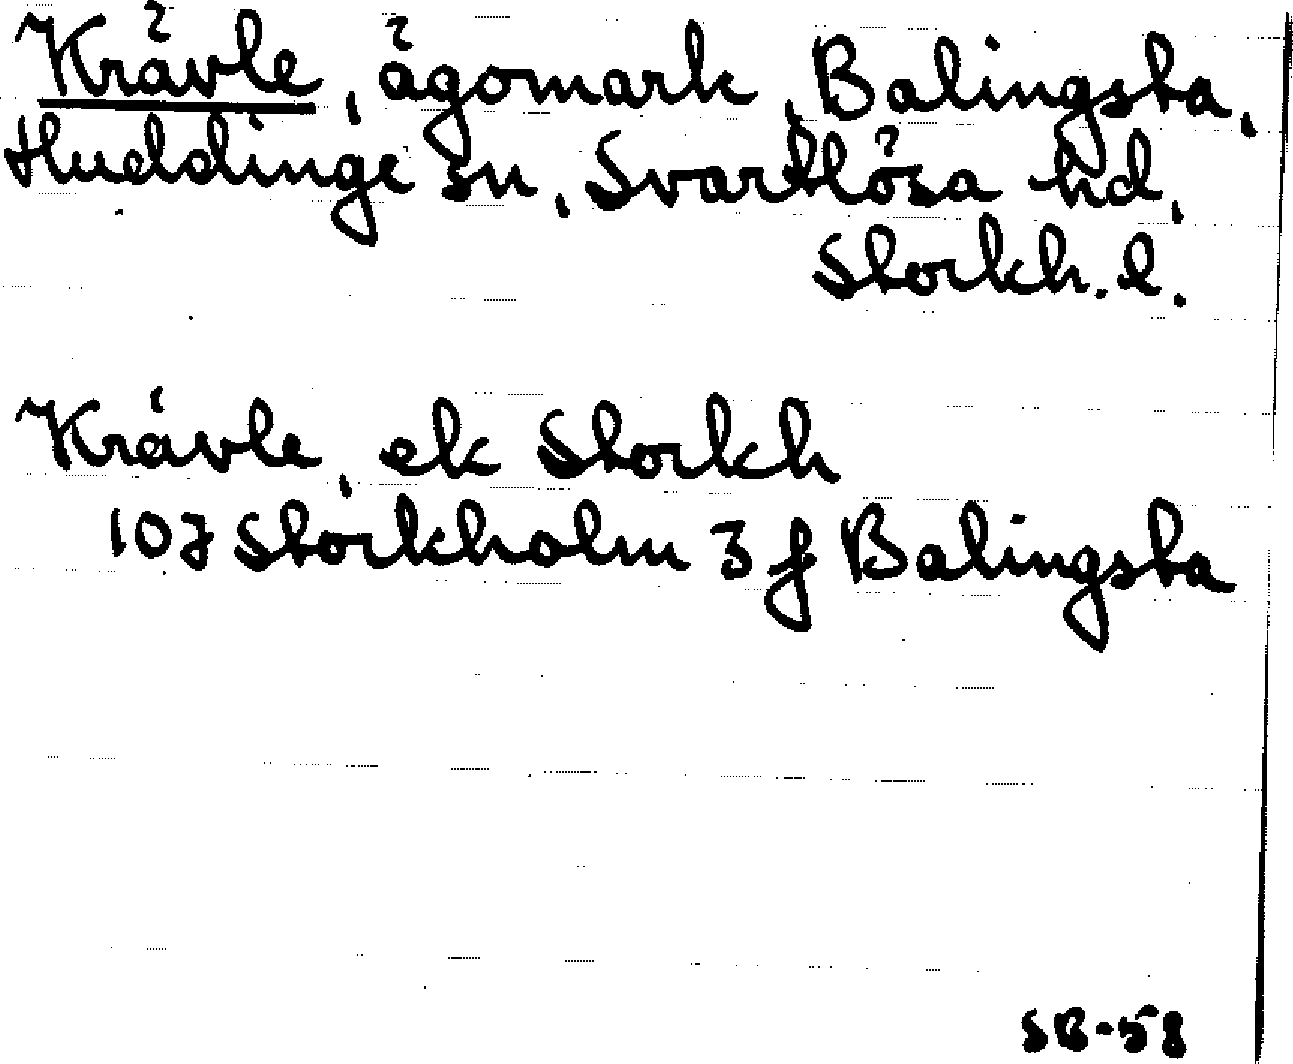 Krävle, ägomark, Balingsta,
Huddinge sn, Svartlösa hd,
Stockh. l.
Krävle, ek Stockh
10J Stockholm 3 f Balingsta
SB-58